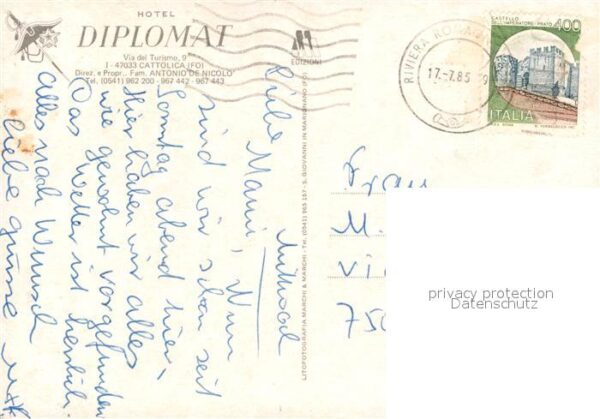 HOTEL
DIPLOMAT
Via del Turismo, 9
I - 47033 CATTOLICA (FO)
Direz. e Propr.: Fam. ANTONIO DE NICOLO'
Tel. (0541) 962 200 - 967 442 - 967 443
EDIZIONI
LITOFOTOGRAFIA MARCHI & MARCHI - TEL. (0541) 963 157 - S. GIOVANNI IN MARIGNANO (FO)
RIVIERA ROMA
17.-7.85
CASTELLO
DELL'IMPERATORE - PRATO
400
ITALIA
Mittwoch
Liebe Mami, Nun
sind wir schon seit
Sonntag abend hier,
hier haben wir alles
wie gewohnt vorgefunden
Das Wetter ist herrlich.
Alles nach Wunsch
liebe Grüsse
Frau
M.
Vi
750
privacy protection
Datenschutz